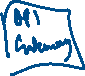 API
Gateway